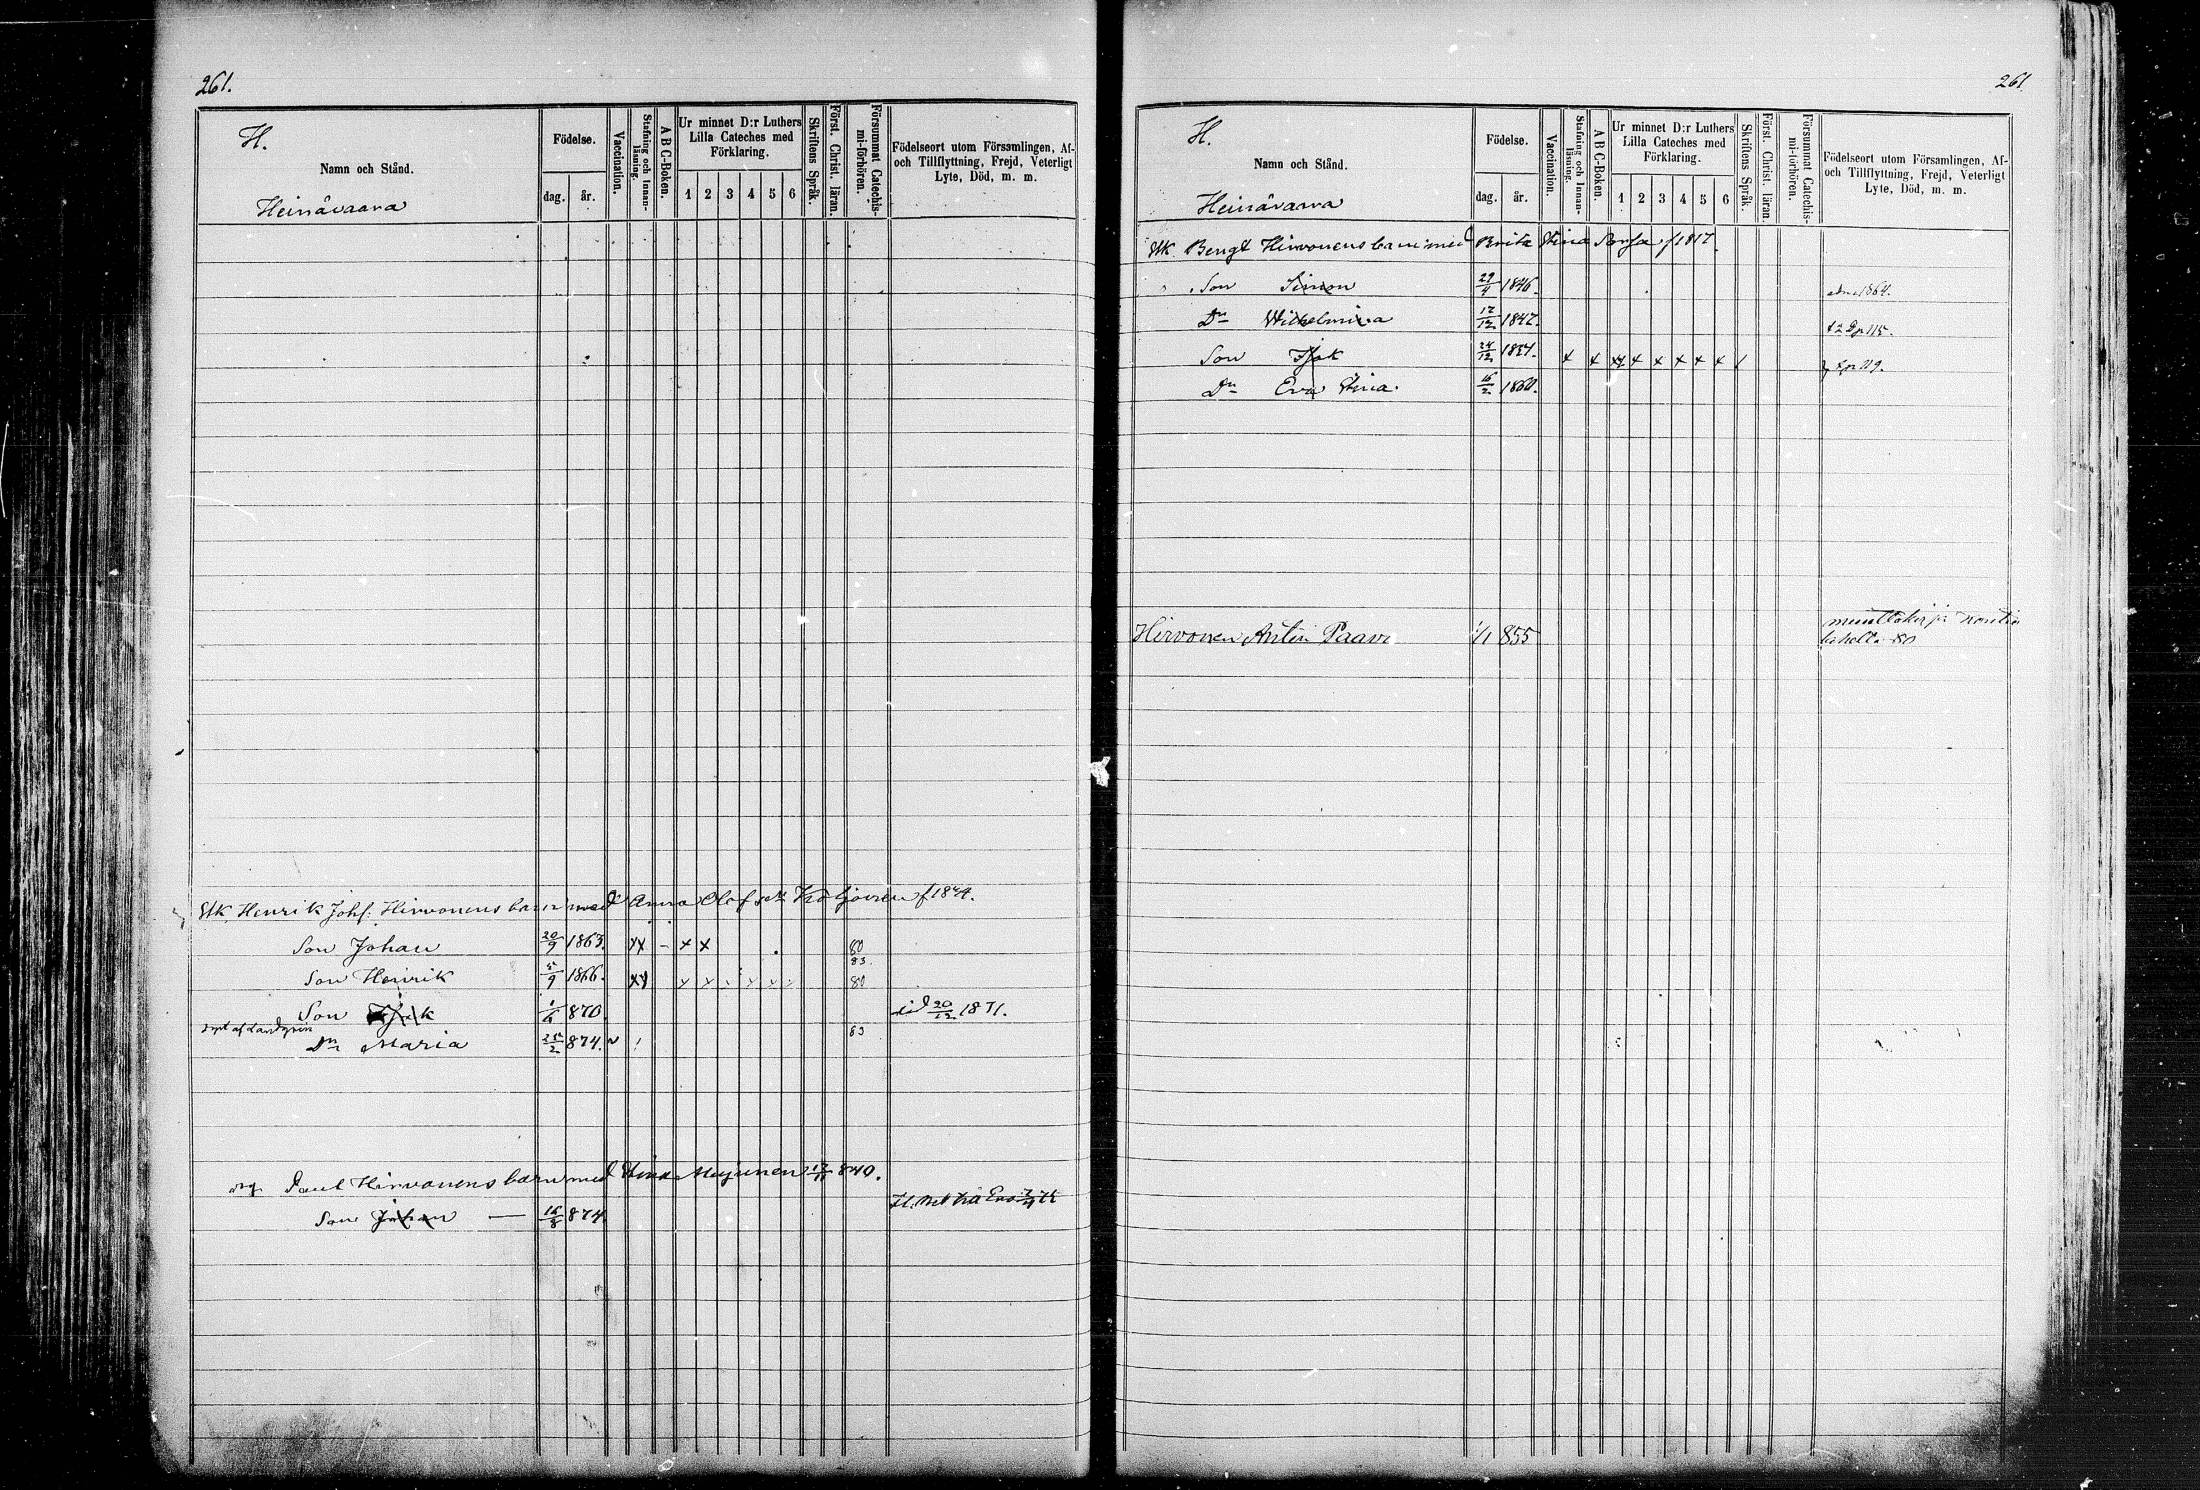 261.
H.
Namn och Stånd.
Heinävaara
Födelse.
dag. år.
Vaccination.
Stafning och Innanläsning.
A B C-Boken.
Ur minnet D:r Luthers Lilla Cateches med Förklaring.
1 2 3 4 5 6
Skriftens Språk.
Först. Christ. läran.
Försummat Catechismi-förhören.
Födelseort utom Församlingen, Af- och Tillflyttning, Frejd, Veterligt Lyte, Död, m. m.
Henrik Johs: Hirvonens barn med Anna Olofsdr f 1844.
Son Johan 20/9 1863. xx - x x 80 83.
Son Henrik 5/9 1866. xx x x x x x x 80
Son 870. död 20/12 1871.
Dr Maria 25/2 874. 83
Paul Hirvonens barn med Stina 17/11 840.
Son Johan — 16/8 874.
261.
H.
Namn och Stånd.
Heinävaara
Födelse.
dag. år.
Vaccination.
Stafning och Innanläsning.
A B C-Boken.
Ur minnet D:r Luthers Lilla Cateches med Förklaring.
1 2 3 4 5 6
Skriftens Språk.
Först. Christ. läran.
Försummat Catechismi-förhören.
Födelseort utom Församlingen, Af- och Tillflyttning, Frejd, Veterligt Lyte, Död, m. m.
Bengt Hirvonens barn med Brita Stina f 1817.
Son Simon 29/4 1846. 1864.
Dr Wilhelmina 17/12 1847.
Son 24/12 x x xx x x x x x
Dr Eva Stina. 16/2 1860.
Hirvonen Antin Paavo 1/1 855 80